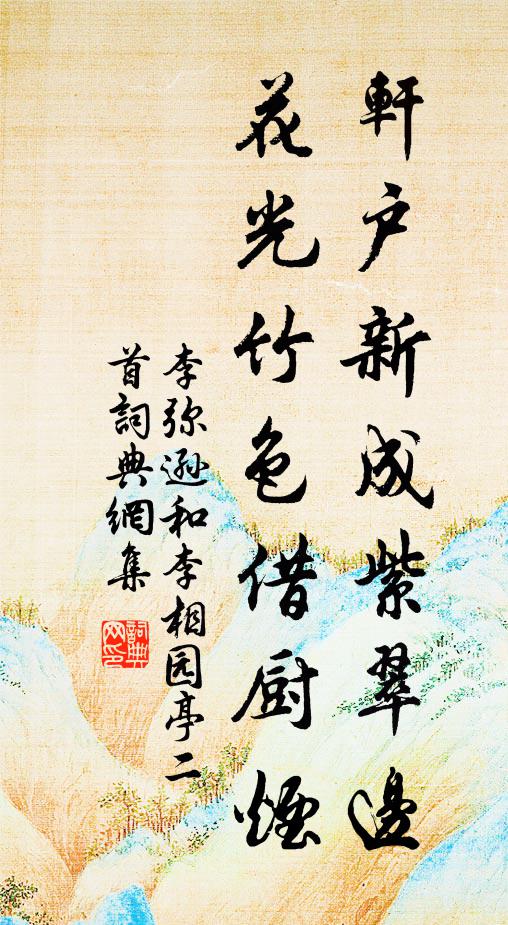 軒户新成紫翠邊
花光竹色借厨煙
李弥遜和李相园亭二
首詞典網集
詞典
网印